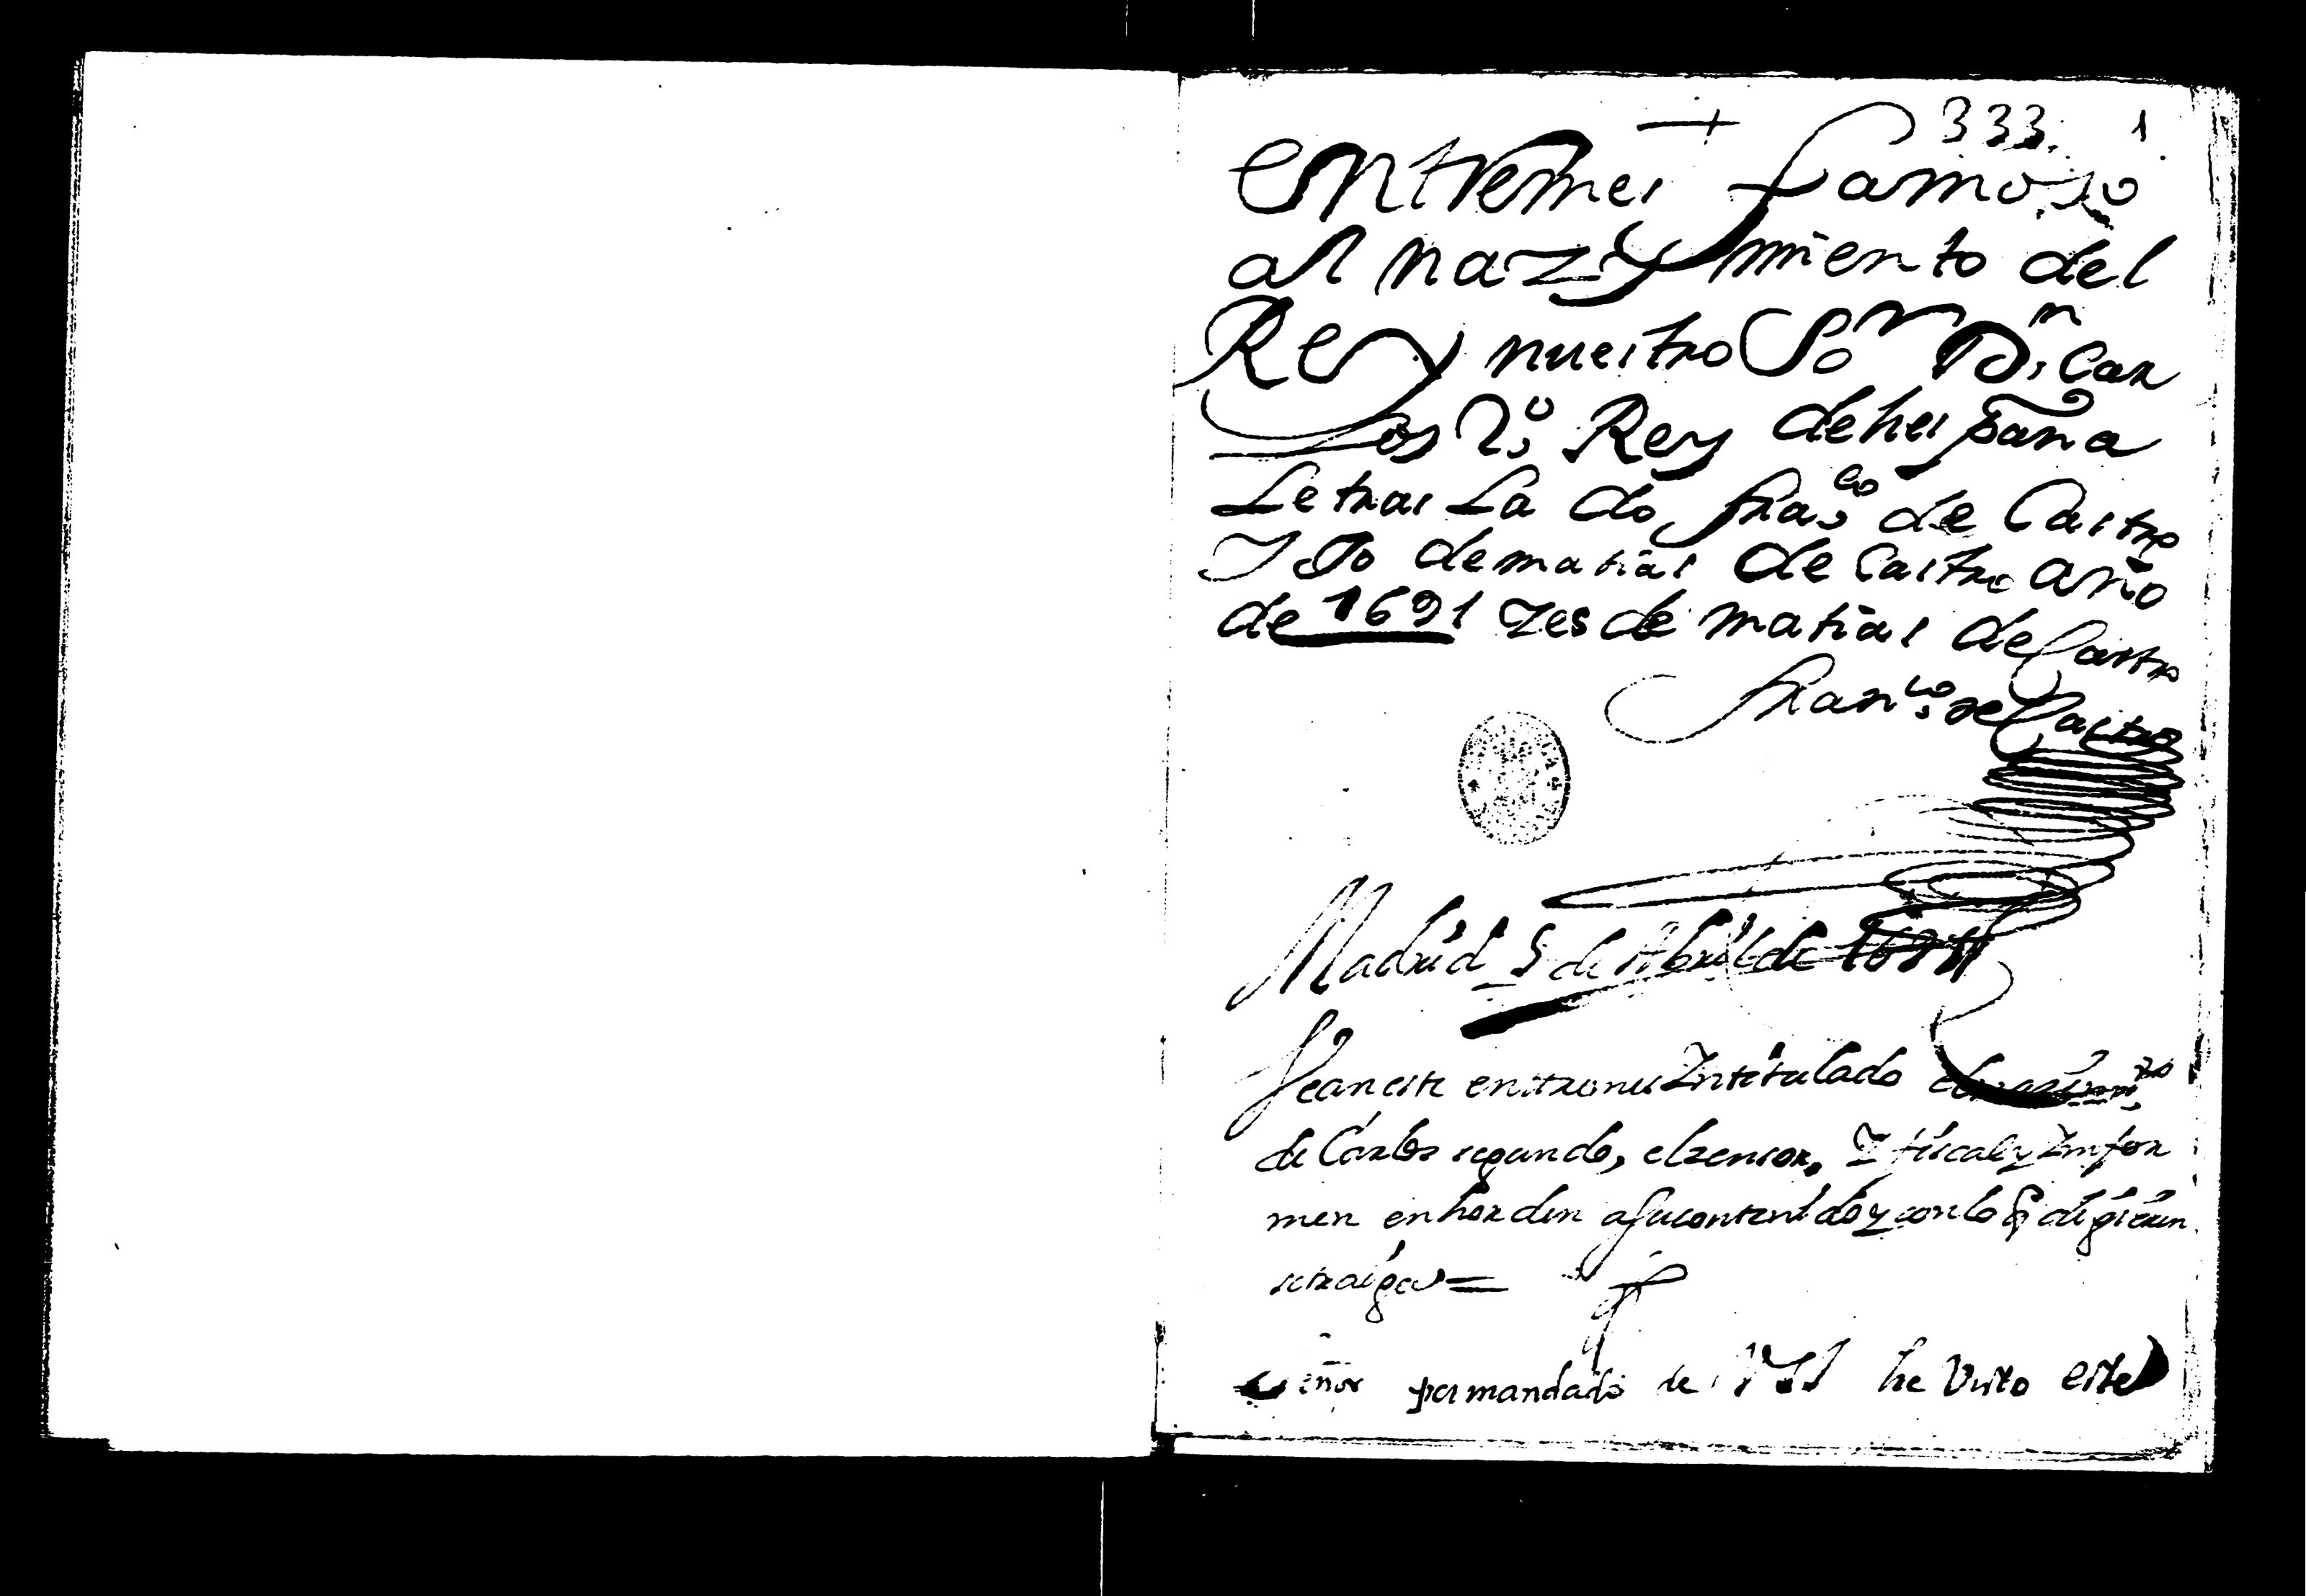 333. 1
entremes famoso
al nazymiento del
Rey nuestro Sor Dn Car
los 2o Rey de hespaña
Letras La do franco de Castro
Y Jo de matias de Castro año
de 1691 Y es de matias de Castro
franco de Castro
Madrid 5 de Abril de
Vean este entremes Intitulado el nazimto
de Carlos segundo, el zensor, Y fiscal y Ynfor
men en horden a su contenido y con lo q digeren
se traiga =
Señor por mandado de he visto este